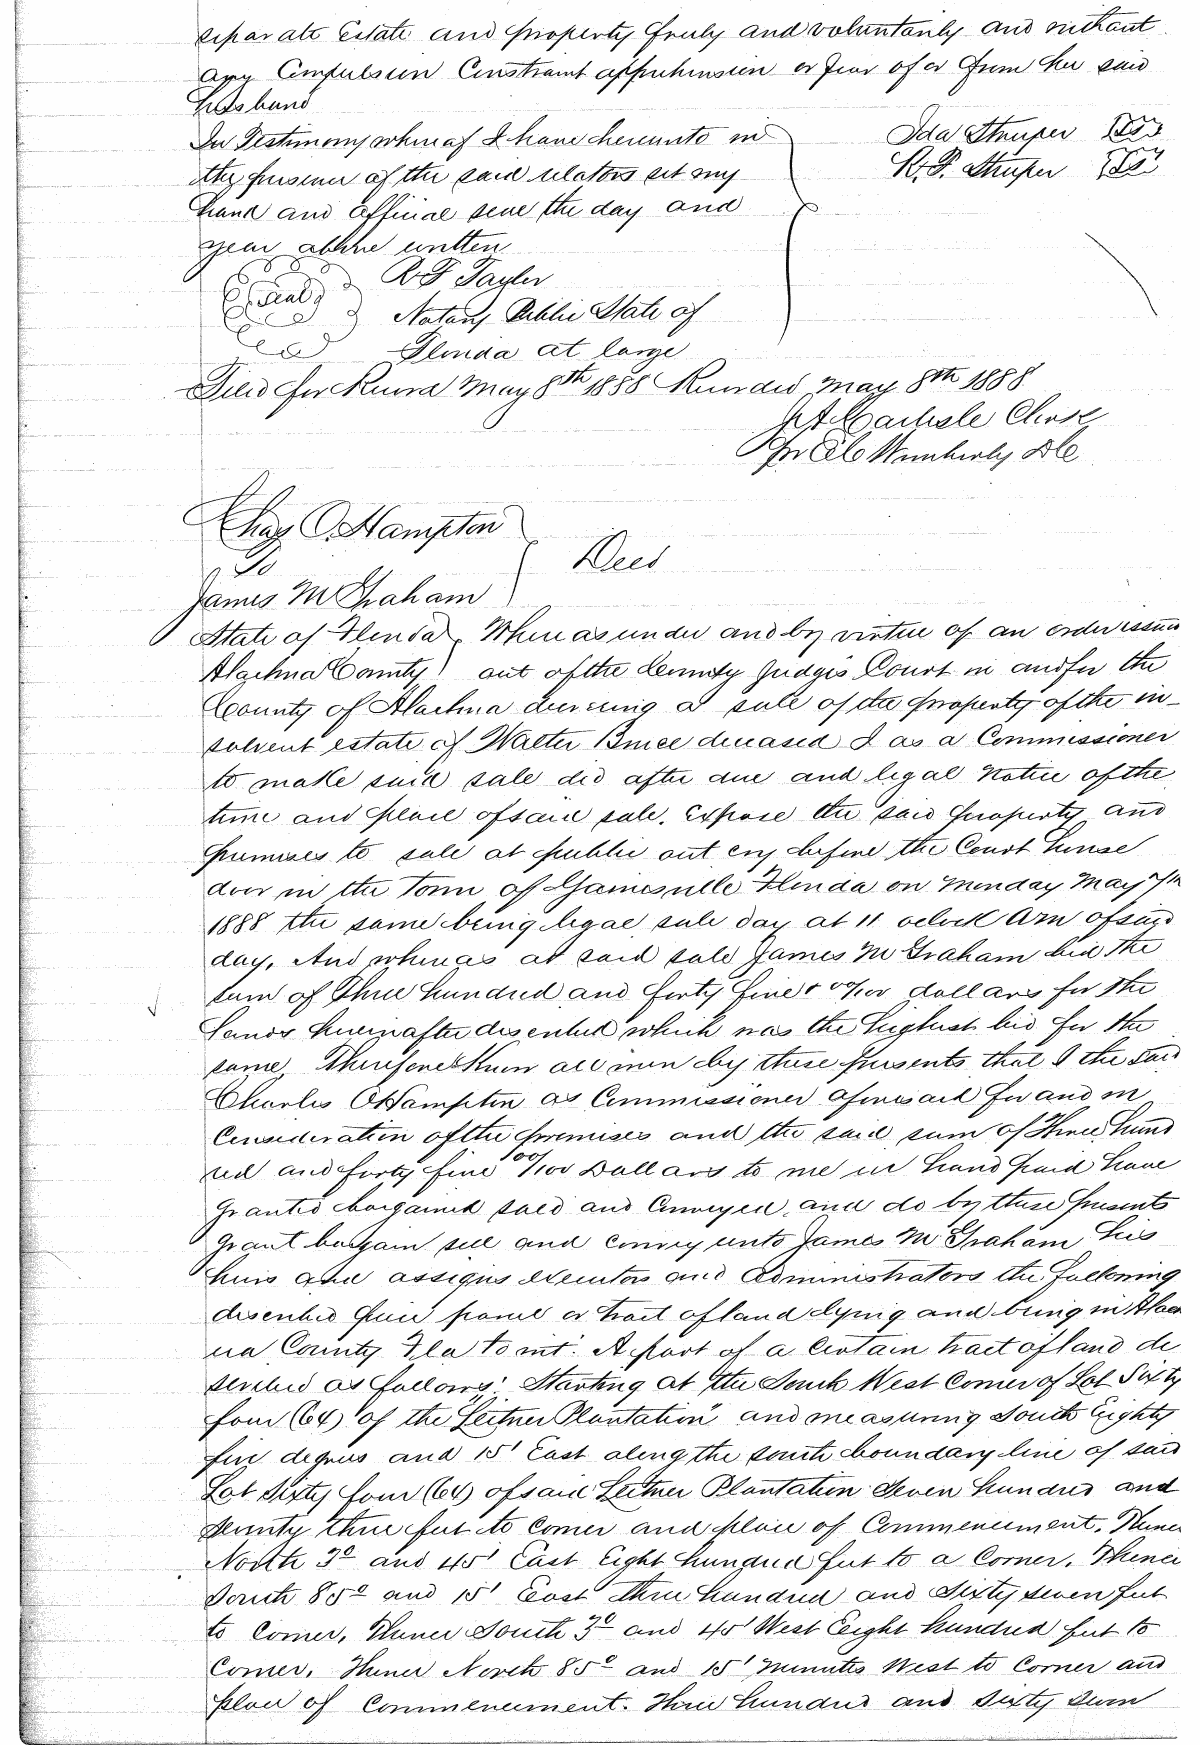 separate Estate and property freely and voluntarily and without
any Compulsion Constraint apprehension or fear of or from her said
husband
In Testimony whereof I have hereunto in
the presence of the said relators set my
hand and official seal the day and
year above written
Ida Struper
R. P. Struper
(Seal)
R F Tayler
Notary Public State of
Florida at large
Filed for Record May 8th 1888 Recorded May 8th 1888
Clerk
Wimberly DC
Chas O. Hampton
To
Deed
James M Graham
State of Florida, Whereas under and by virtue of an order issued
Alachua County) out of the County Judges Court in and for the
County of Alachua decreeing a sale of the property of the in-
solvent estate of Walter Brice deceased I as a Commissioner
to make said sale did after due and legal Notice of the
time and place of said sale. Expose the said property and
premises to sale at public out cry before the Court house
door in the Town of Gainesville Florida on Monday May 7th
1888 the same being legal sale day at 11 oclock Am of said
day. And whereas at said sale James M Graham bid the
sum of Three hundred and forty five & 00/100 dollars for the
lands hereinafter described which was the highest bid for the
same, Therefore Know all men by these presents that I the said
Charles O Hampton as Commissioner aforesaid for and in
Consideration of the premises and the said sum of Three hund
red and forty five 00/100 Dollars to me in hand paid have
Granted bargained sold and Conveyed, and do by these presents
Grant bargain sell and convey unto James M Graham his
heirs and assigns Executors and Administrators the following
described piece parcel or tract of land lying and being in Alach
ua County Fla To wit: A part of a Certain tract of land de
scribed as follows: Starting at the South West Corner of Lot Sixty
four (64) of the "Leitner Plantation" and measuring South Eighty
five degrees and 15' East along the south boundary line of said
Lot Sixty four (64) of said Leitner Plantation Seven hundred and
Seventy three feet to Corner and place of Commencement. Thence
North 3° and 45' East Eight hundred feet to a Corner. Thence
South 85° and 15' East three hundred and Sixty seven feet
to Corner, Thence South 3° and 45' West Eight hundred feet to
Corner. Thence North 85° and 15' Minutes West to Corner and
place of Commencement. Three hundred and sixty seven